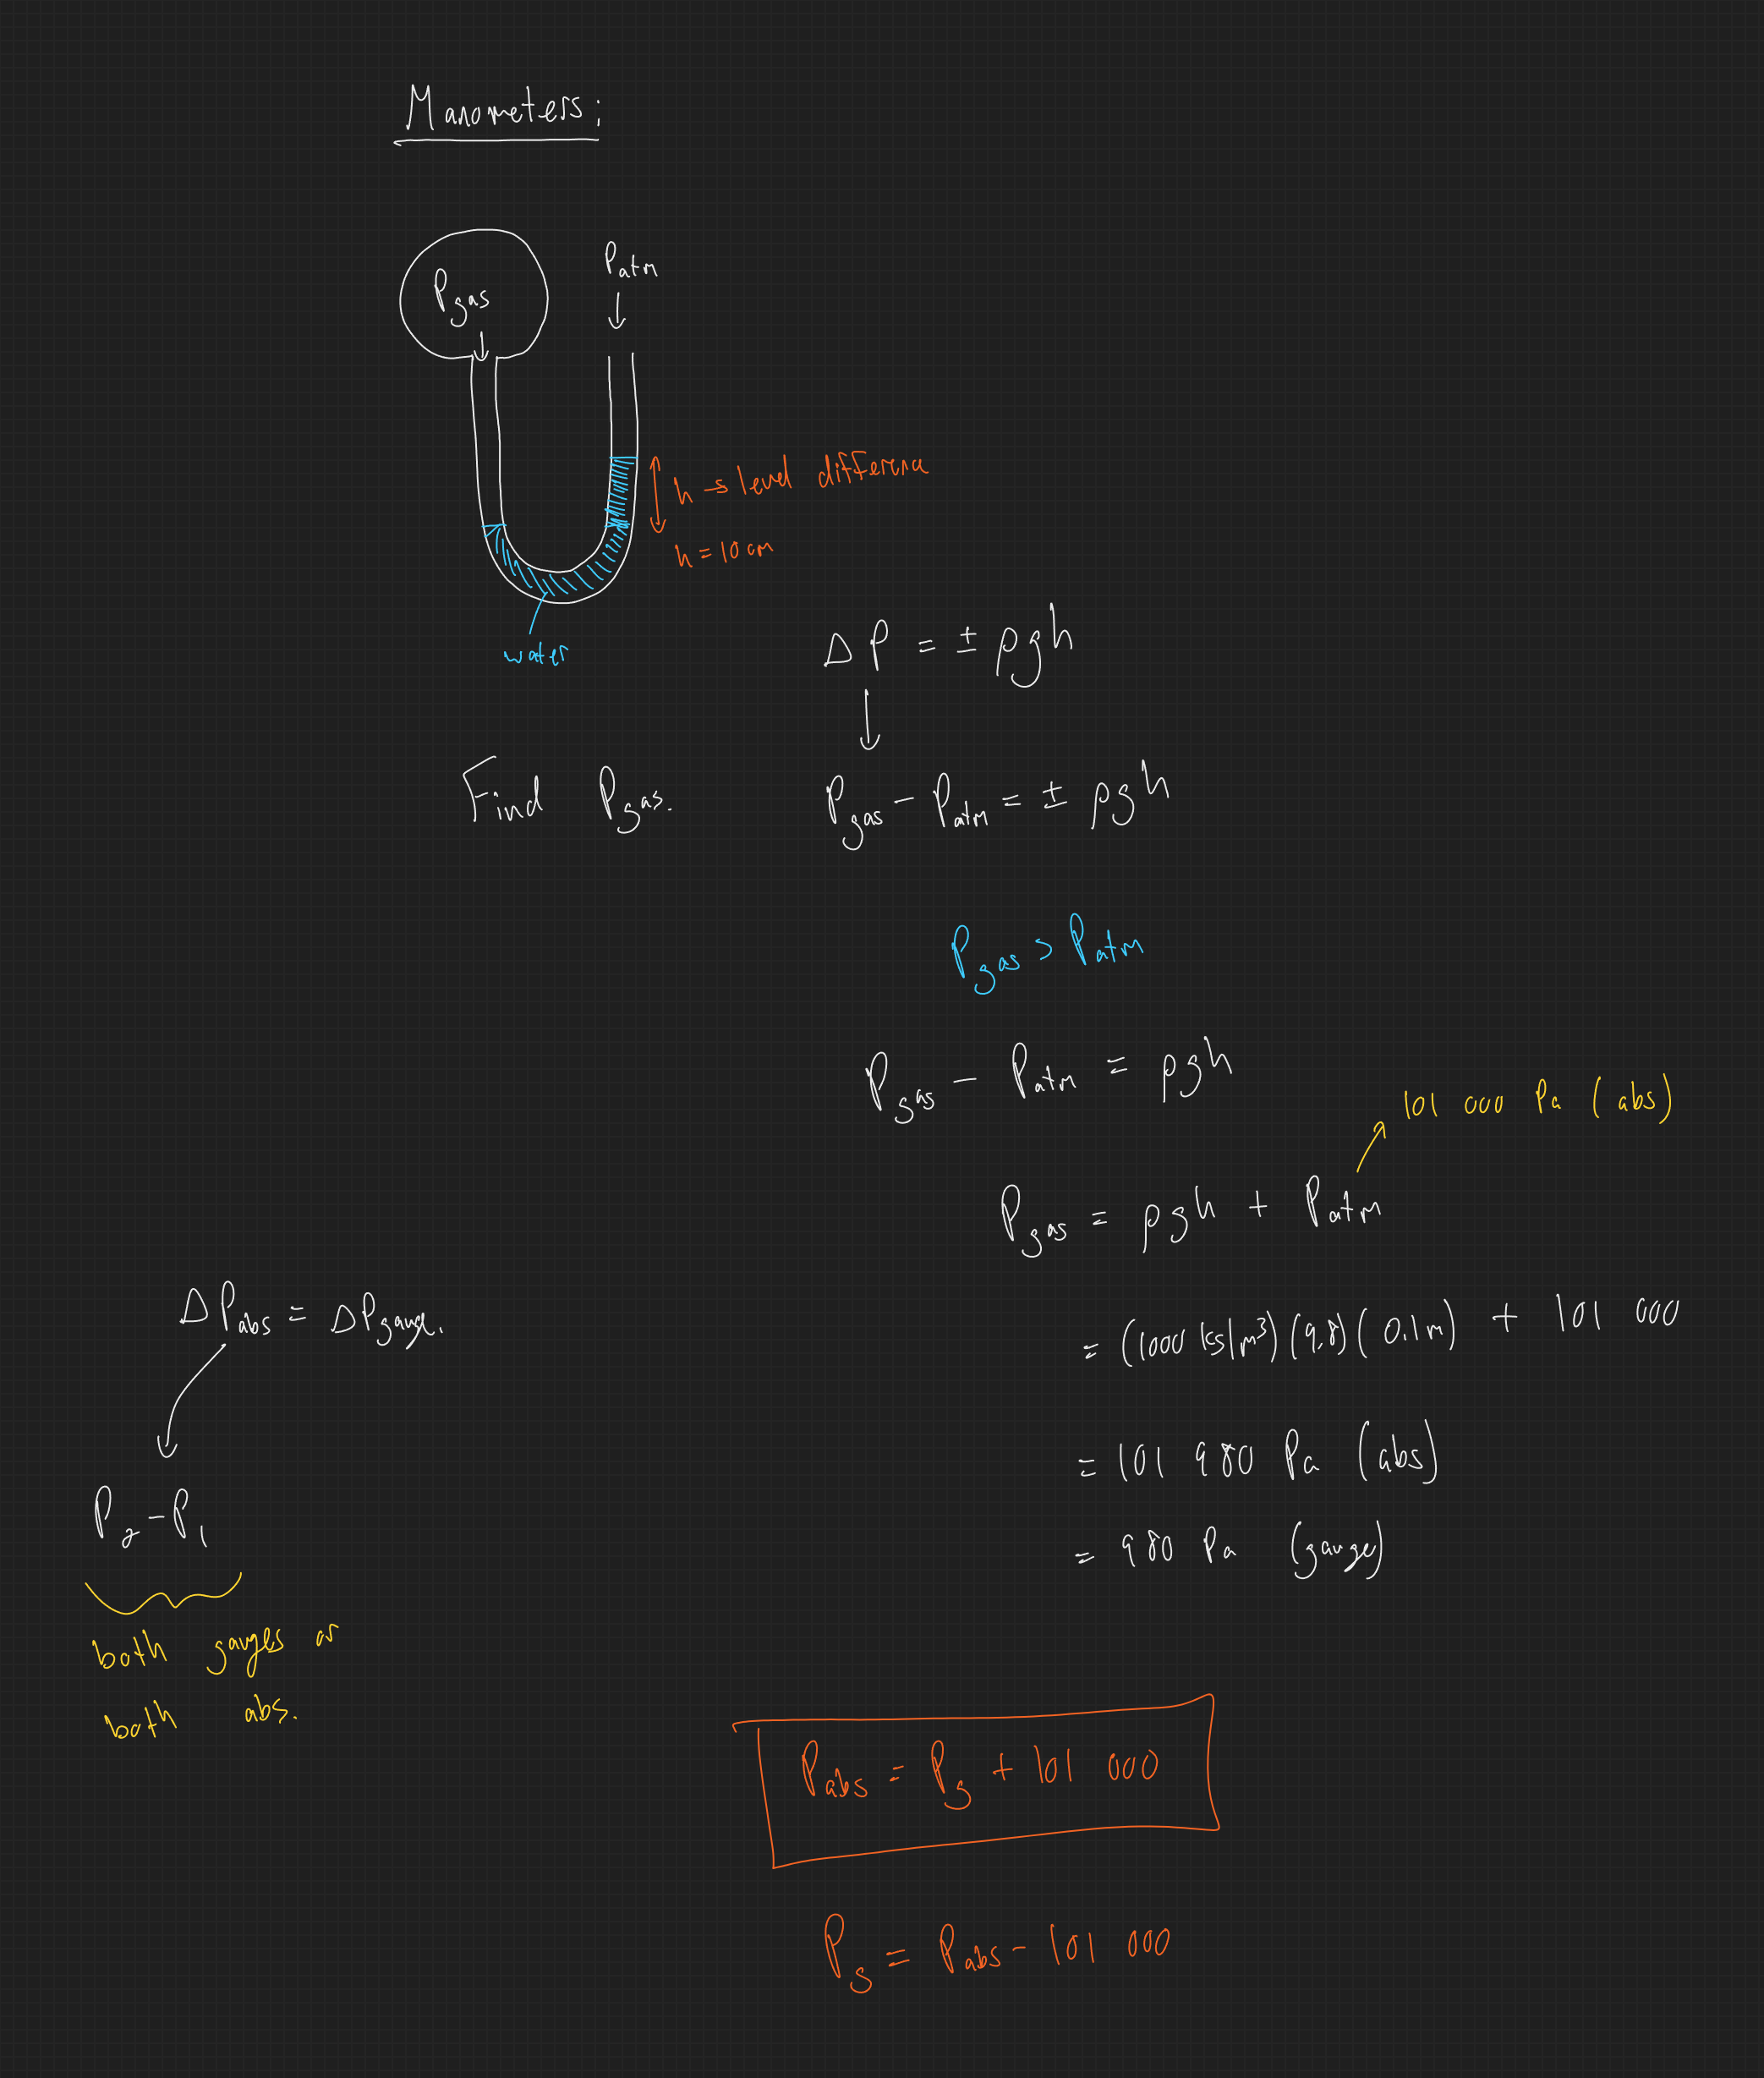 Manometers:
Pgas
Patm
h → level difference
h = 10 cm
water
ΔP = ± ρgh
Find Pgas.
Pgas − Patm = ± ρgh
Pgas > Patm
Pgas − Patm = ρgh
101 000 Pa (abs)
Pgas = ρgh + Patm
= (1000 kg/m³) (9.8) (0.1m) + 101 000
= 101 980 Pa (abs)
= 980 Pa (gauge)
ΔPabs = ΔPgauge.
P2 − P1
both gauges or
both abs.
Pabs = Pg + 101 000
Pg = Pabs − 101 000